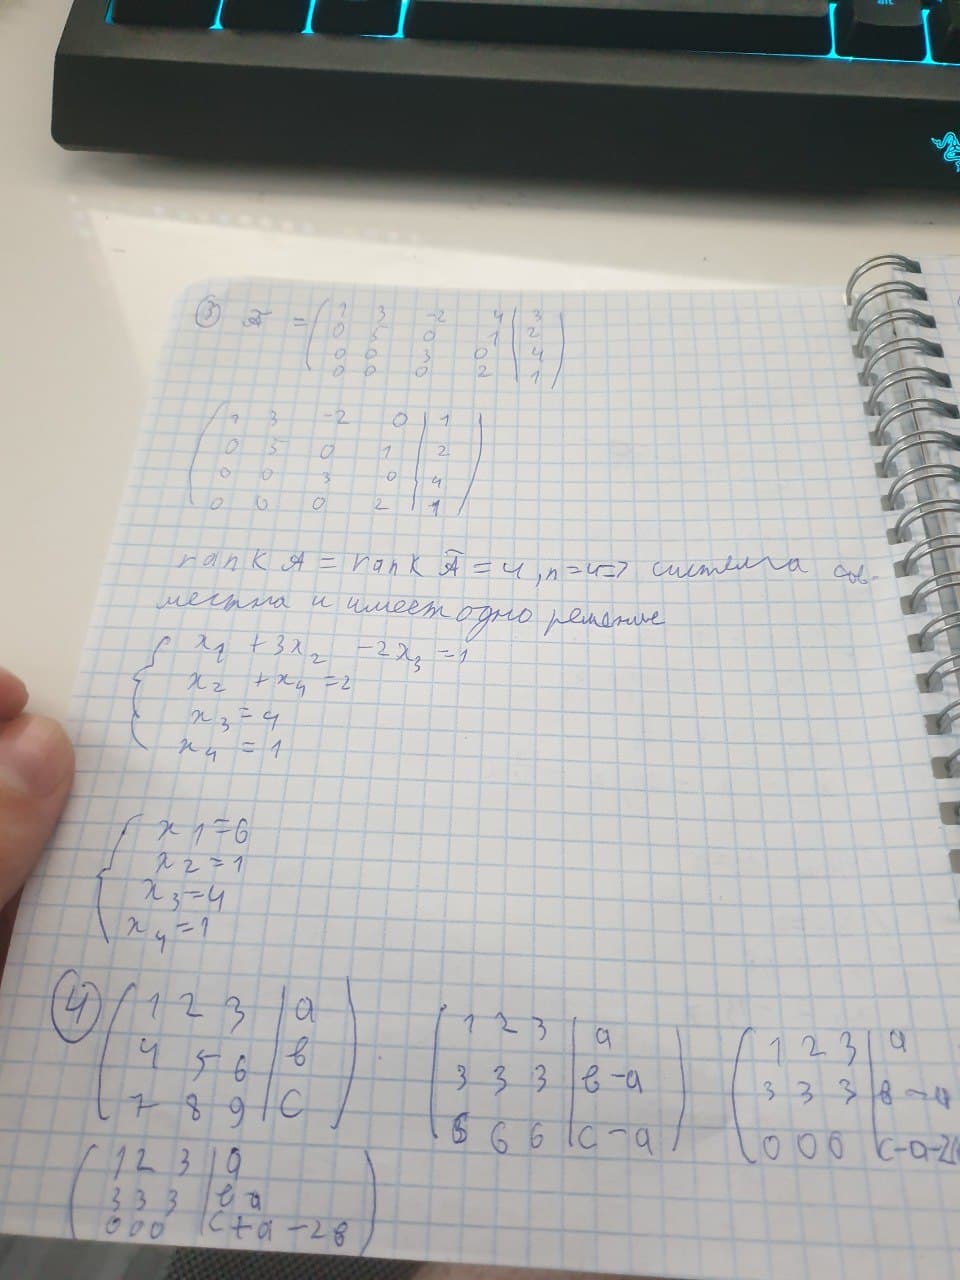 alt
③ Ā = ( 1 3 -2 4 | 3 )
( 0 5 0 1 | 2 )
( 0 0 3 0 | 4 )
( 0 0 0 2 | 1 )
( 1 3 -2 0 | 1 )
( 0 5 0 1 | 2 )
( 0 0 3 0 | 4 )
( 0 0 0 2 | 1 )
rank A = rank Ā = 4, n=4=> система сов-
местна и имеет одно решение
x1 + 3x2 - 2x3 = 1
x2 + x4 = 2
x3 = 4
x4 = 1
x1 = 6
x2 = 1
x3 = 4
x4 = 1
④ ( 1 2 3 | a ) ( 1 2 3 | a ) ( 1 2 3 | a
( 4 5 6 | в ) ( 3 3 3 | в-a ) ( 3 3 3 | в-a
( 7 8 9 | c ) ( 6 6 6 | c-a ) ( 0 0 0 | c-a-2(
( 1 2 3 | a )
( 3 3 3 | в-a )
( 0 0 0 | c+a-2в )